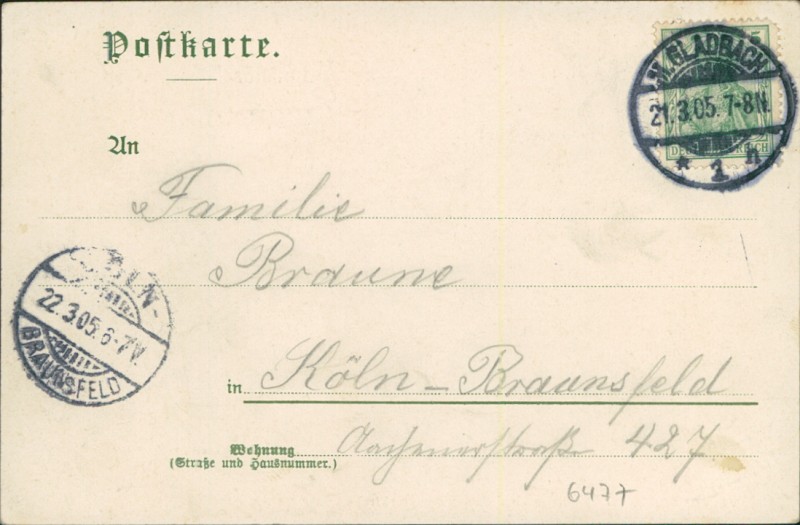 Postkarte.
5
M.GLADBACH
21.3.05.7-8N.
* 1 n
DEUTSCHES REICH
An
Familie
Braune
CÖLN-
22.3.05.6-7V.
BRAUNSFELD
in Köln-Braunsfeld
Wohnung
(Straße und Hausnummer.)
Aachenerstraße 427
6477